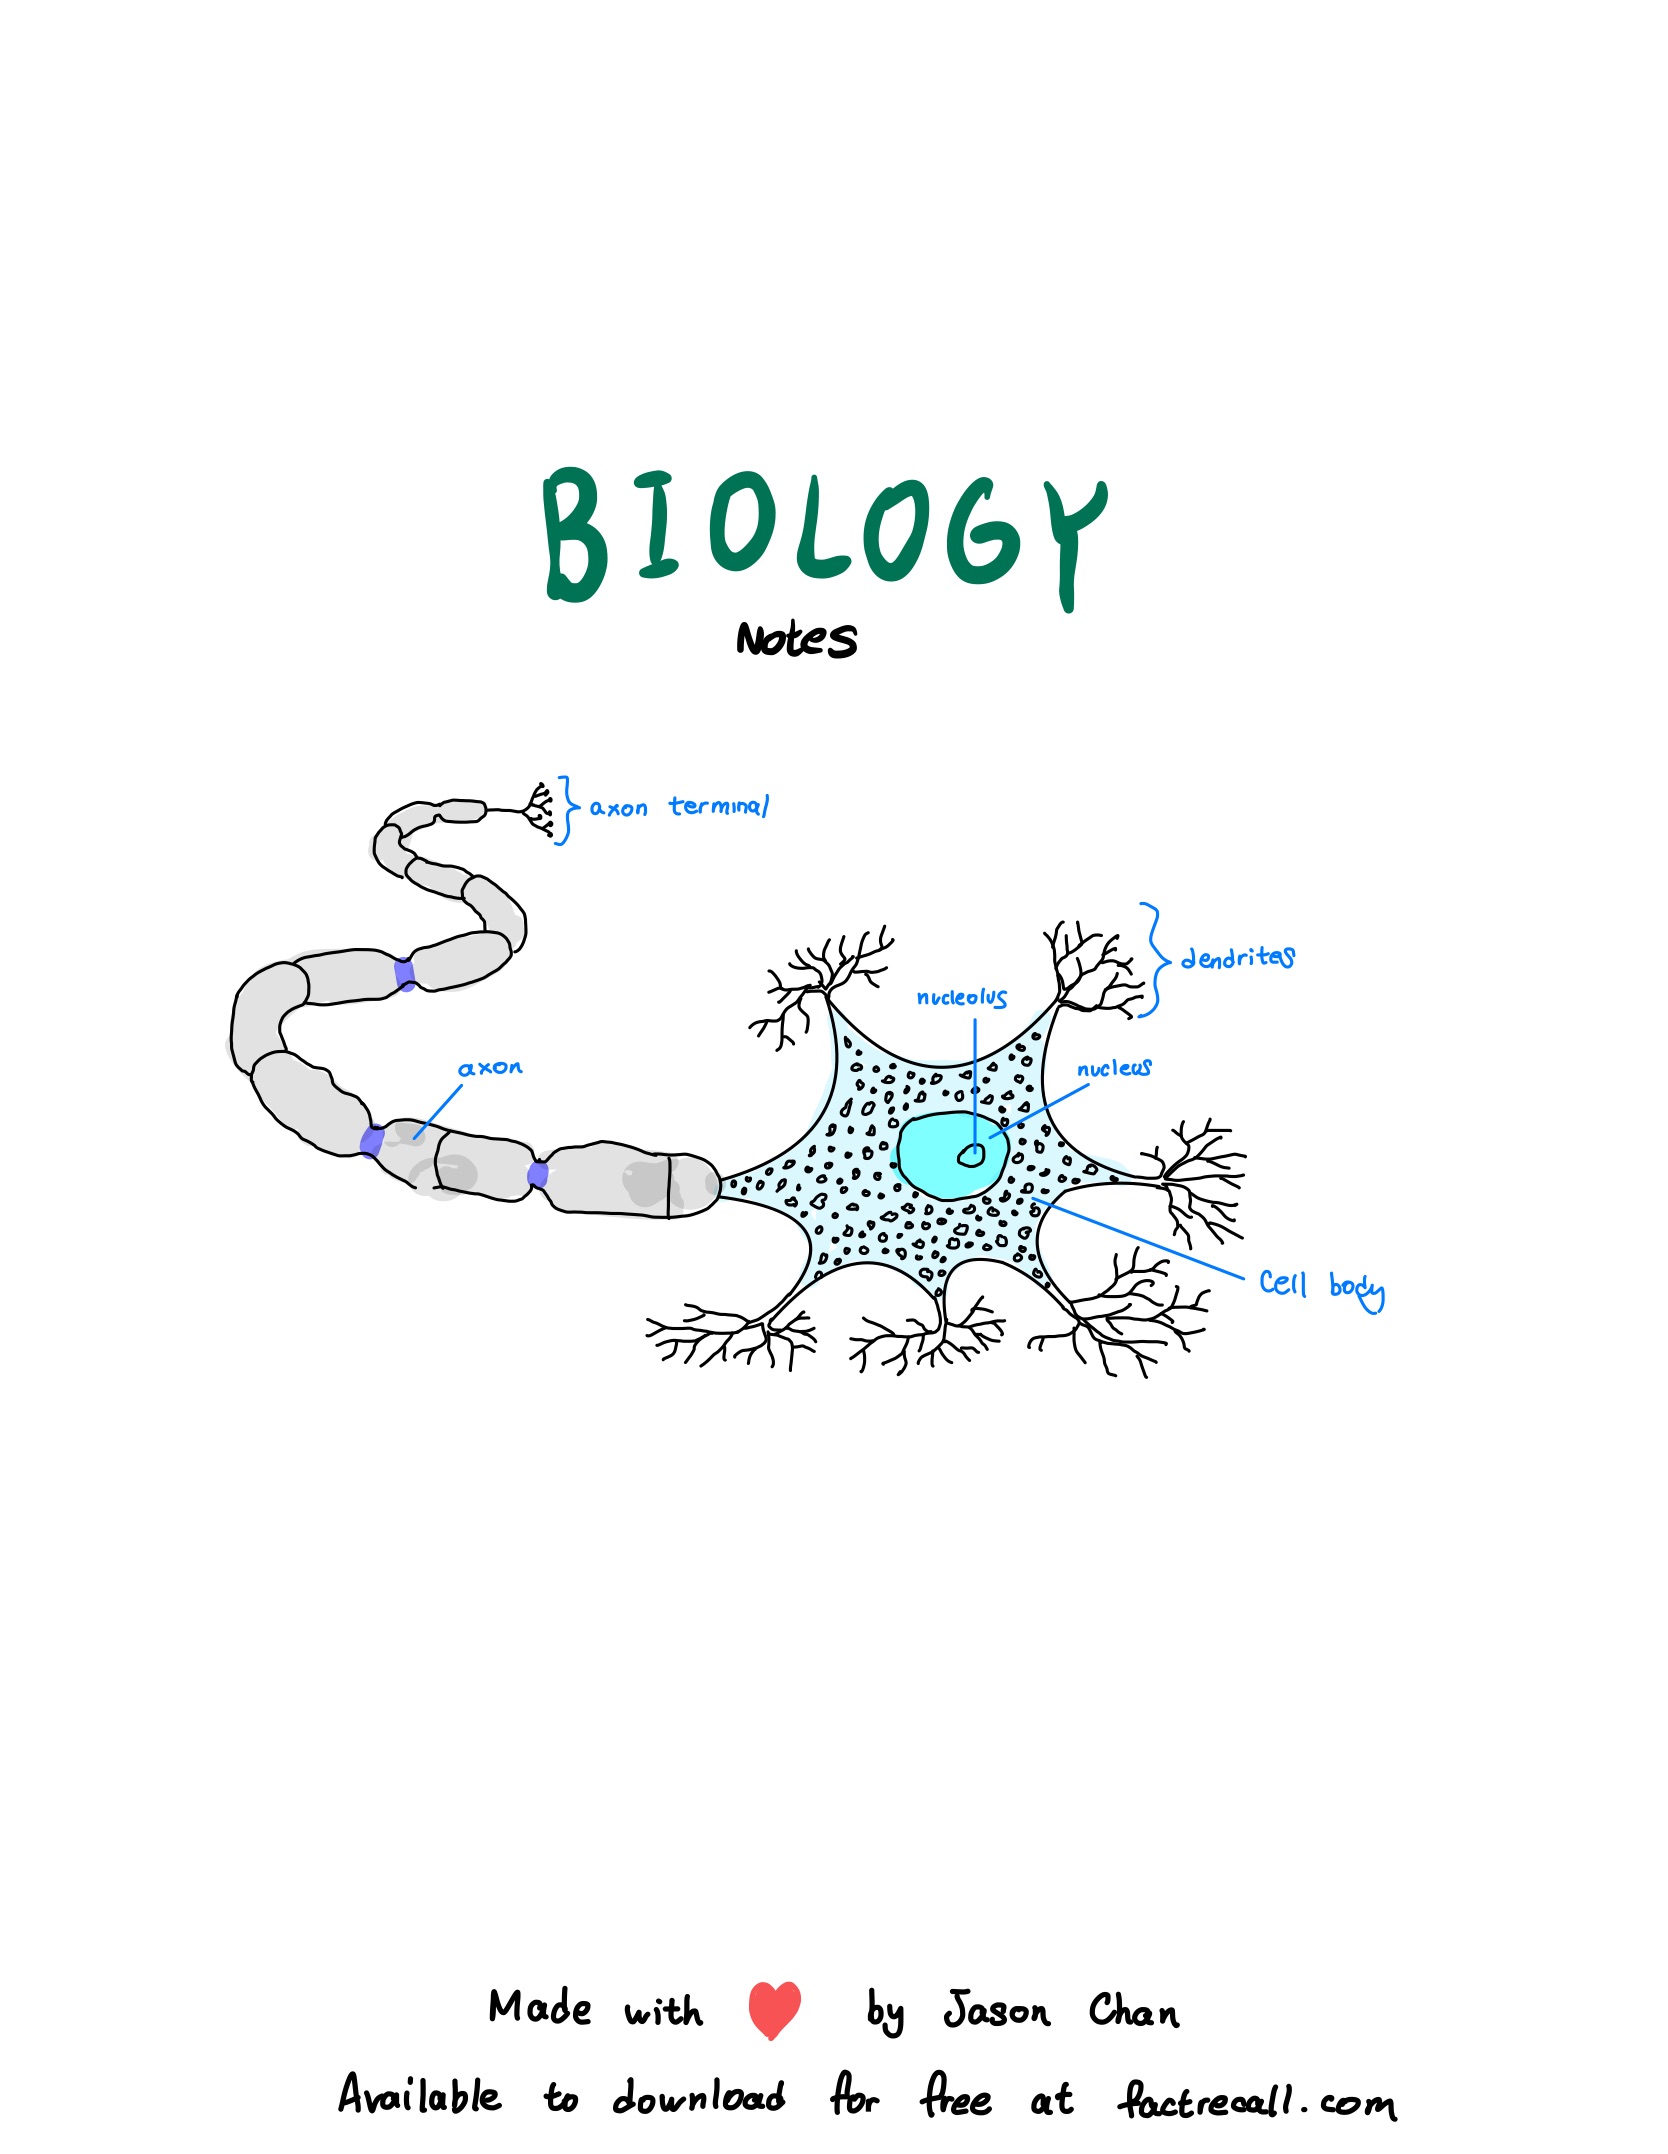 BIOLOGY
Notes
axon terminal
dendrites
nucleolus
nucleus
axon
Cell body
Made with by Jason Chan
Available to download for free at factrecall.com